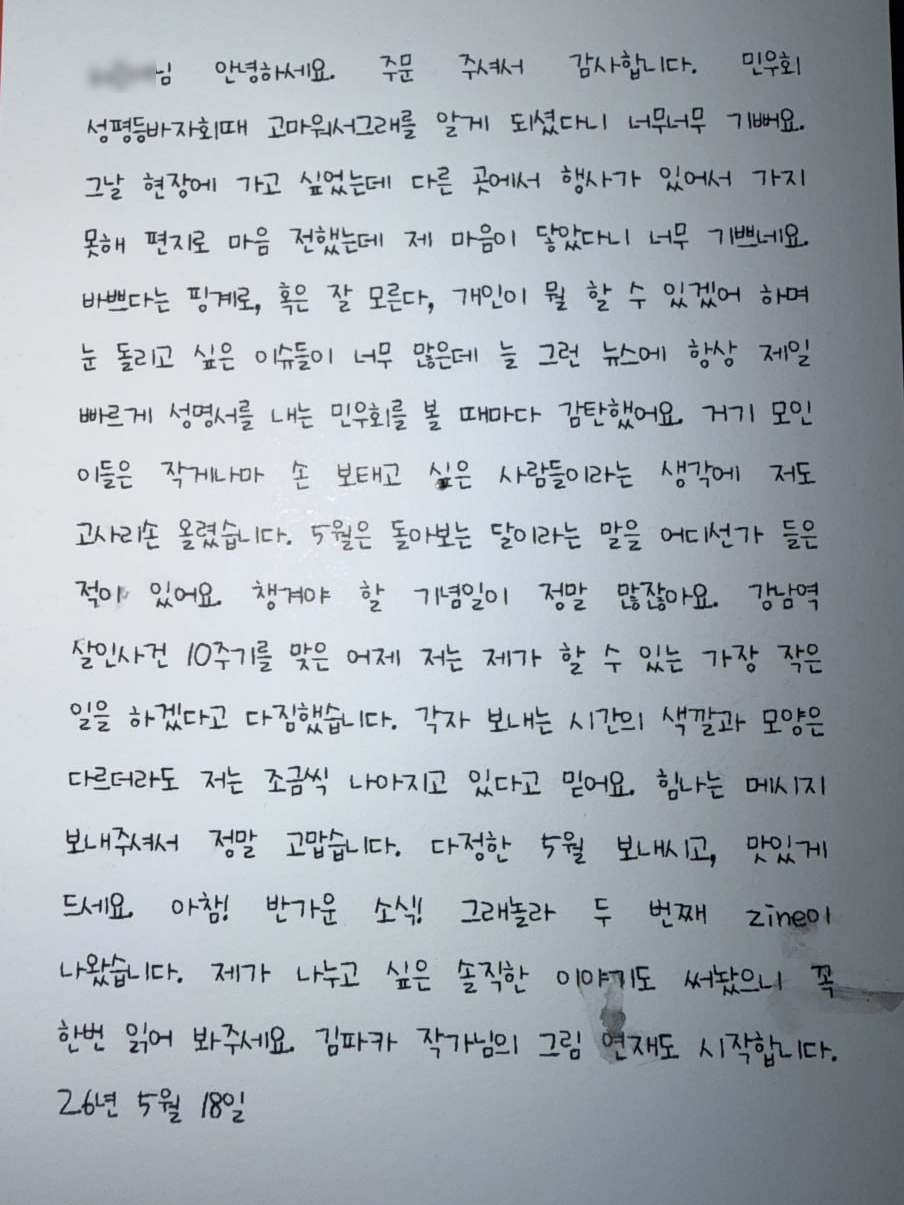 님 안녕하세요. 주문 주셔서 감사합니다. 민우회
성평등바자회때 고마워서그래를 알게 되셨다니 너무너무 기뻐요.
그날 현장에 가고 싶었는데 다른 곳에서 행사가 있어서 가지
못해 편지로 마음 전했는데 제 마음이 닿았다니 너무 기쁘네요.
바쁘다는 핑계로, 혹은 잘 모른다, 개인이 뭘 할 수 있겠어 하며
눈 돌리고 싶은 이슈들이 너무 많은데 늘 그런 뉴스에 항상 제일
빠르게 성명서를 내는 민우회를 볼 때마다 감탄했어요. 거기 모인
이들은 작게나마 손 보태고 싶은 사람들이라는 생각에 저도
고사리손 올렸습니다. 5월은 돌아보는 달이라는 말을 어디선가 들은
적이 있어요. 챙겨야 할 기념일이 정말 많잖아요. 강남역
살인사건 10주기를 맞은 어제 저는 제가 할 수 있는 가장 작은
일을 하겠다고 다짐했습니다. 각자 보내는 시간의 색깔과 모양은
다르더라도 저는 조금씩 나아지고 있다고 믿어요. 힘나는 메시지
보내주셔서 정말 고맙습니다. 다정한 5월 보내시고, 맛있게
드세요. 아참! 반가운 소식! 그래놀라 두 번째 zine이
나왔습니다. 제가 나누고 싶은 솔직한 이야기도 써놨으니 꼭
한번 읽어 봐주세요. 김파카 작가님의 그림 연재도 시작합니다.
26년 5월 18일